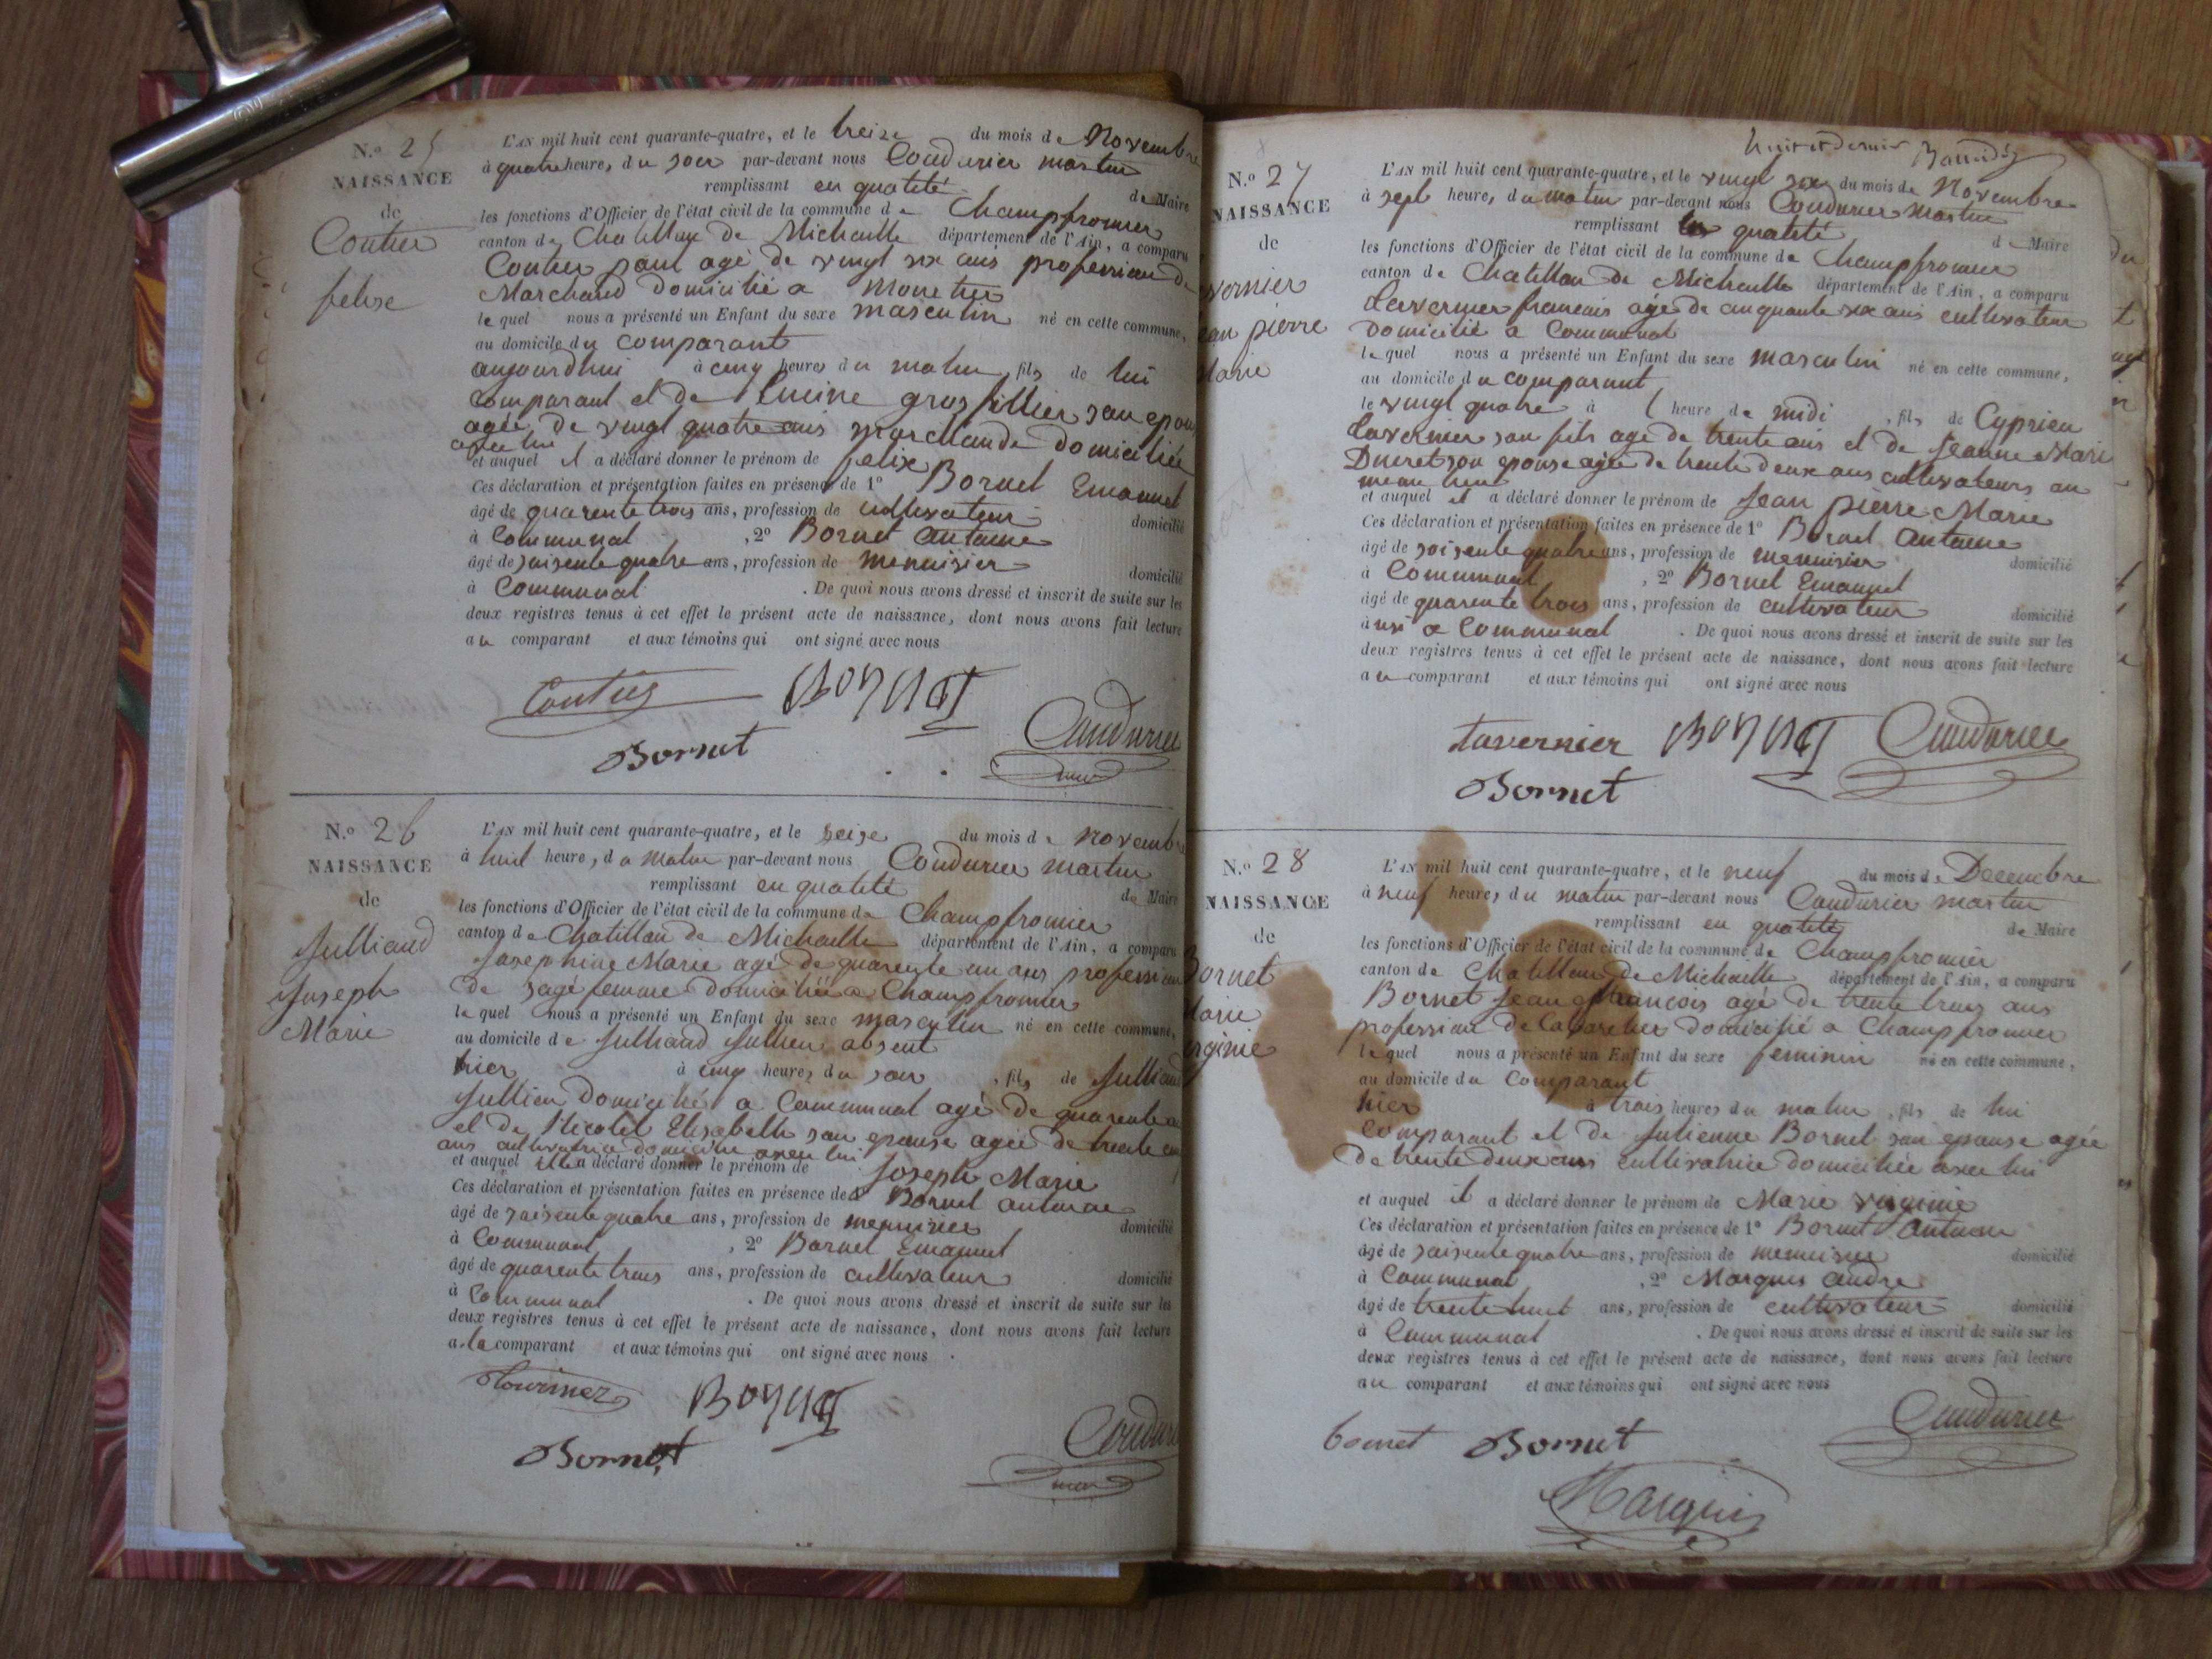 N.º 25
NAISSANCE
de
Coutier
felixe
L'AN mil huit cent quarante-quatre, et le treize du mois de Novembre
à quatre heures, du soir par-devant nous Coudurier martin
remplissant en qualité de Maire
les fonctions d'Officier de l'état civil de la commune de Champfromier
canton de Chatillon de Michaille département de l'Ain, a comparu
Coutier paul agé de vingt six ans profession de
Marchand Domicilié a Monetier
lequel nous a présenté un Enfant du sexe masculin né en cette commune,
au domicile du comparant
aujourdhui à cinq heures du matin, fils de lui
comparant et de gros fillier son epouse
agée de vingt quatre ans marchande domiciliée
avec lui
et auquel il a déclaré donner le prénom de felix
Ces déclaration et présentation faites en présence de 1º Bornet Emanuel
âgé de quarente trois ans, profession de cultivateur domicilié
à Communal, 2º Bornet Antoine
âgé de soisente quatre ans, profession de menuisier domicilié
à Communal. De quoi nous avons dressé et inscrit de suite sur les
deux registres tenus à cet effet le présent acte de naissance, dont nous avons fait lecture
au comparant et aux témoins qui ont signé avec nous
Coutier Bornet
Coudurier
Bornet
N.º 26
NAISSANCE
de
Julliand
Joseph
Marie
L'AN mil huit cent quarante-quatre, et le seize du mois de Novembre
à huit heures, du matin par-devant nous Coudurier martin
remplissant en qualité de Maire
les fonctions d'Officier de l'état civil de la commune de Champfromier
canton de Chatillon de Michaille département de l'Ain, a comparu
Josephine Marie agé de quarente un ans profession
de sage femme domiciliée a Champfromier
lequel nous a présenté un Enfant du sexe masculin né en cette commune,
au domicile de Julliand Jullien absent
hier à cinq heures du soir, fils de Julliand
Jullien Domicilié a Communal agé de quarente
et de Nicolet Elisabelle son epouse agée de trente
ans cultivatrice domicilie avec lui
et auquel elle a déclaré donner le prénom de Joseph Marie
Ces déclaration et présentation faites en présence de Bornet antoine
âgé de soisente quatre ans, profession de menuisier domicilié
à Communal, 2º Bornet Emanuel
âgé de quarente trois ans, profession de cultivateur domicilié
à Communal. De quoi nous avons dressé et inscrit de suite sur les
deux registres tenus à cet effet le présent acte de naissance, dont nous avons fait lecture
a la comparant et aux témoins qui ont signé avec nous.
Bornet
Bornet
huit et dernier
N.º 27
NAISSANCE
de
vernier
ean pierre
Marie
L'AN mil huit cent quarante-quatre, et le vingt six du mois de Novembre
à sept heures, du matin par-devant nous Coudurier Martin
remplissant en qualité de Maire
les fonctions d'Officier de l'état civil de la commune de Champfromier
canton de Chatillon de Michaille département de l'Ain, a comparu
Tavernier francois agé de cinquante six ans cultivateur
Domicilié a Communal
lequel nous a présenté un Enfant du sexe masculin né en cette commune,
au domicile du comparant
le vingt quatre à heure de midi, fils de Cyprien
tavernier son fils agé de trente ans et de Jeanne Marie
Ducret son epouse agée de trente deux ans cultivateurs au
meme lieu
et auquel il a déclaré donner le prénom de Jean pierre Marie
Ces déclaration et présentation faites en présence de 1º Bornet Antoine
âgé de soisente quatre ans, profession de menuisier domicilié
à Communal, 2º Bornet Emanuel
âgé de quarente trois ans, profession de cultivateur domicilié
à a Communal. De quoi nous avons dressé et inscrit de suite sur les
deux registres tenus à cet effet le présent acte de naissance, dont nous avons fait lecture
au comparant et aux témoins qui ont signé avec nous
tavernier Bornet Coudurier
Bornet
N.º 28
NAISSANCE
de
Bornet
Marie
irginie
L'AN mil huit cent quarante-quatre, et le neuf du mois de Decembre
à neuf heures, du matin par-devant nous Coudurier martin
remplissant en qualité de Maire
les fonctions d'Officier de l'état civil de la commune de Champfromier
canton de Chatillon de Michaille département de l'Ain, a comparu
Bornet Jean francois agé de trente trois ans
profession de cabaretier domicilié a Champfromier
lequel nous a présenté un Enfant du sexe feminin né en cette commune,
au domicile du Comparant
hier à trois heures du matin, fils de lui
comparant et de Julienne Bornet son epouse agée
de trente deux ans cultivatrice domiciliée avec lui
et auquel il a déclaré donner le prénom de Marie virginie
Ces déclaration et présentation faites en présence de 1º Bornet Antoine
âgé de soisente quatre ans, profession de menuisier domicilié
à Communal, 2º Marquis andre
âgé de trente huit ans, profession de cultivateur domicilié
à Communal. De quoi nous avons dressé et inscrit de suite sur les
deux registres tenus à cet effet le présent acte de naissance, dont nous avons fait lecture
au comparant et aux témoins qui ont signé avec nous
Coudurier
bornet Bornet
Marquis